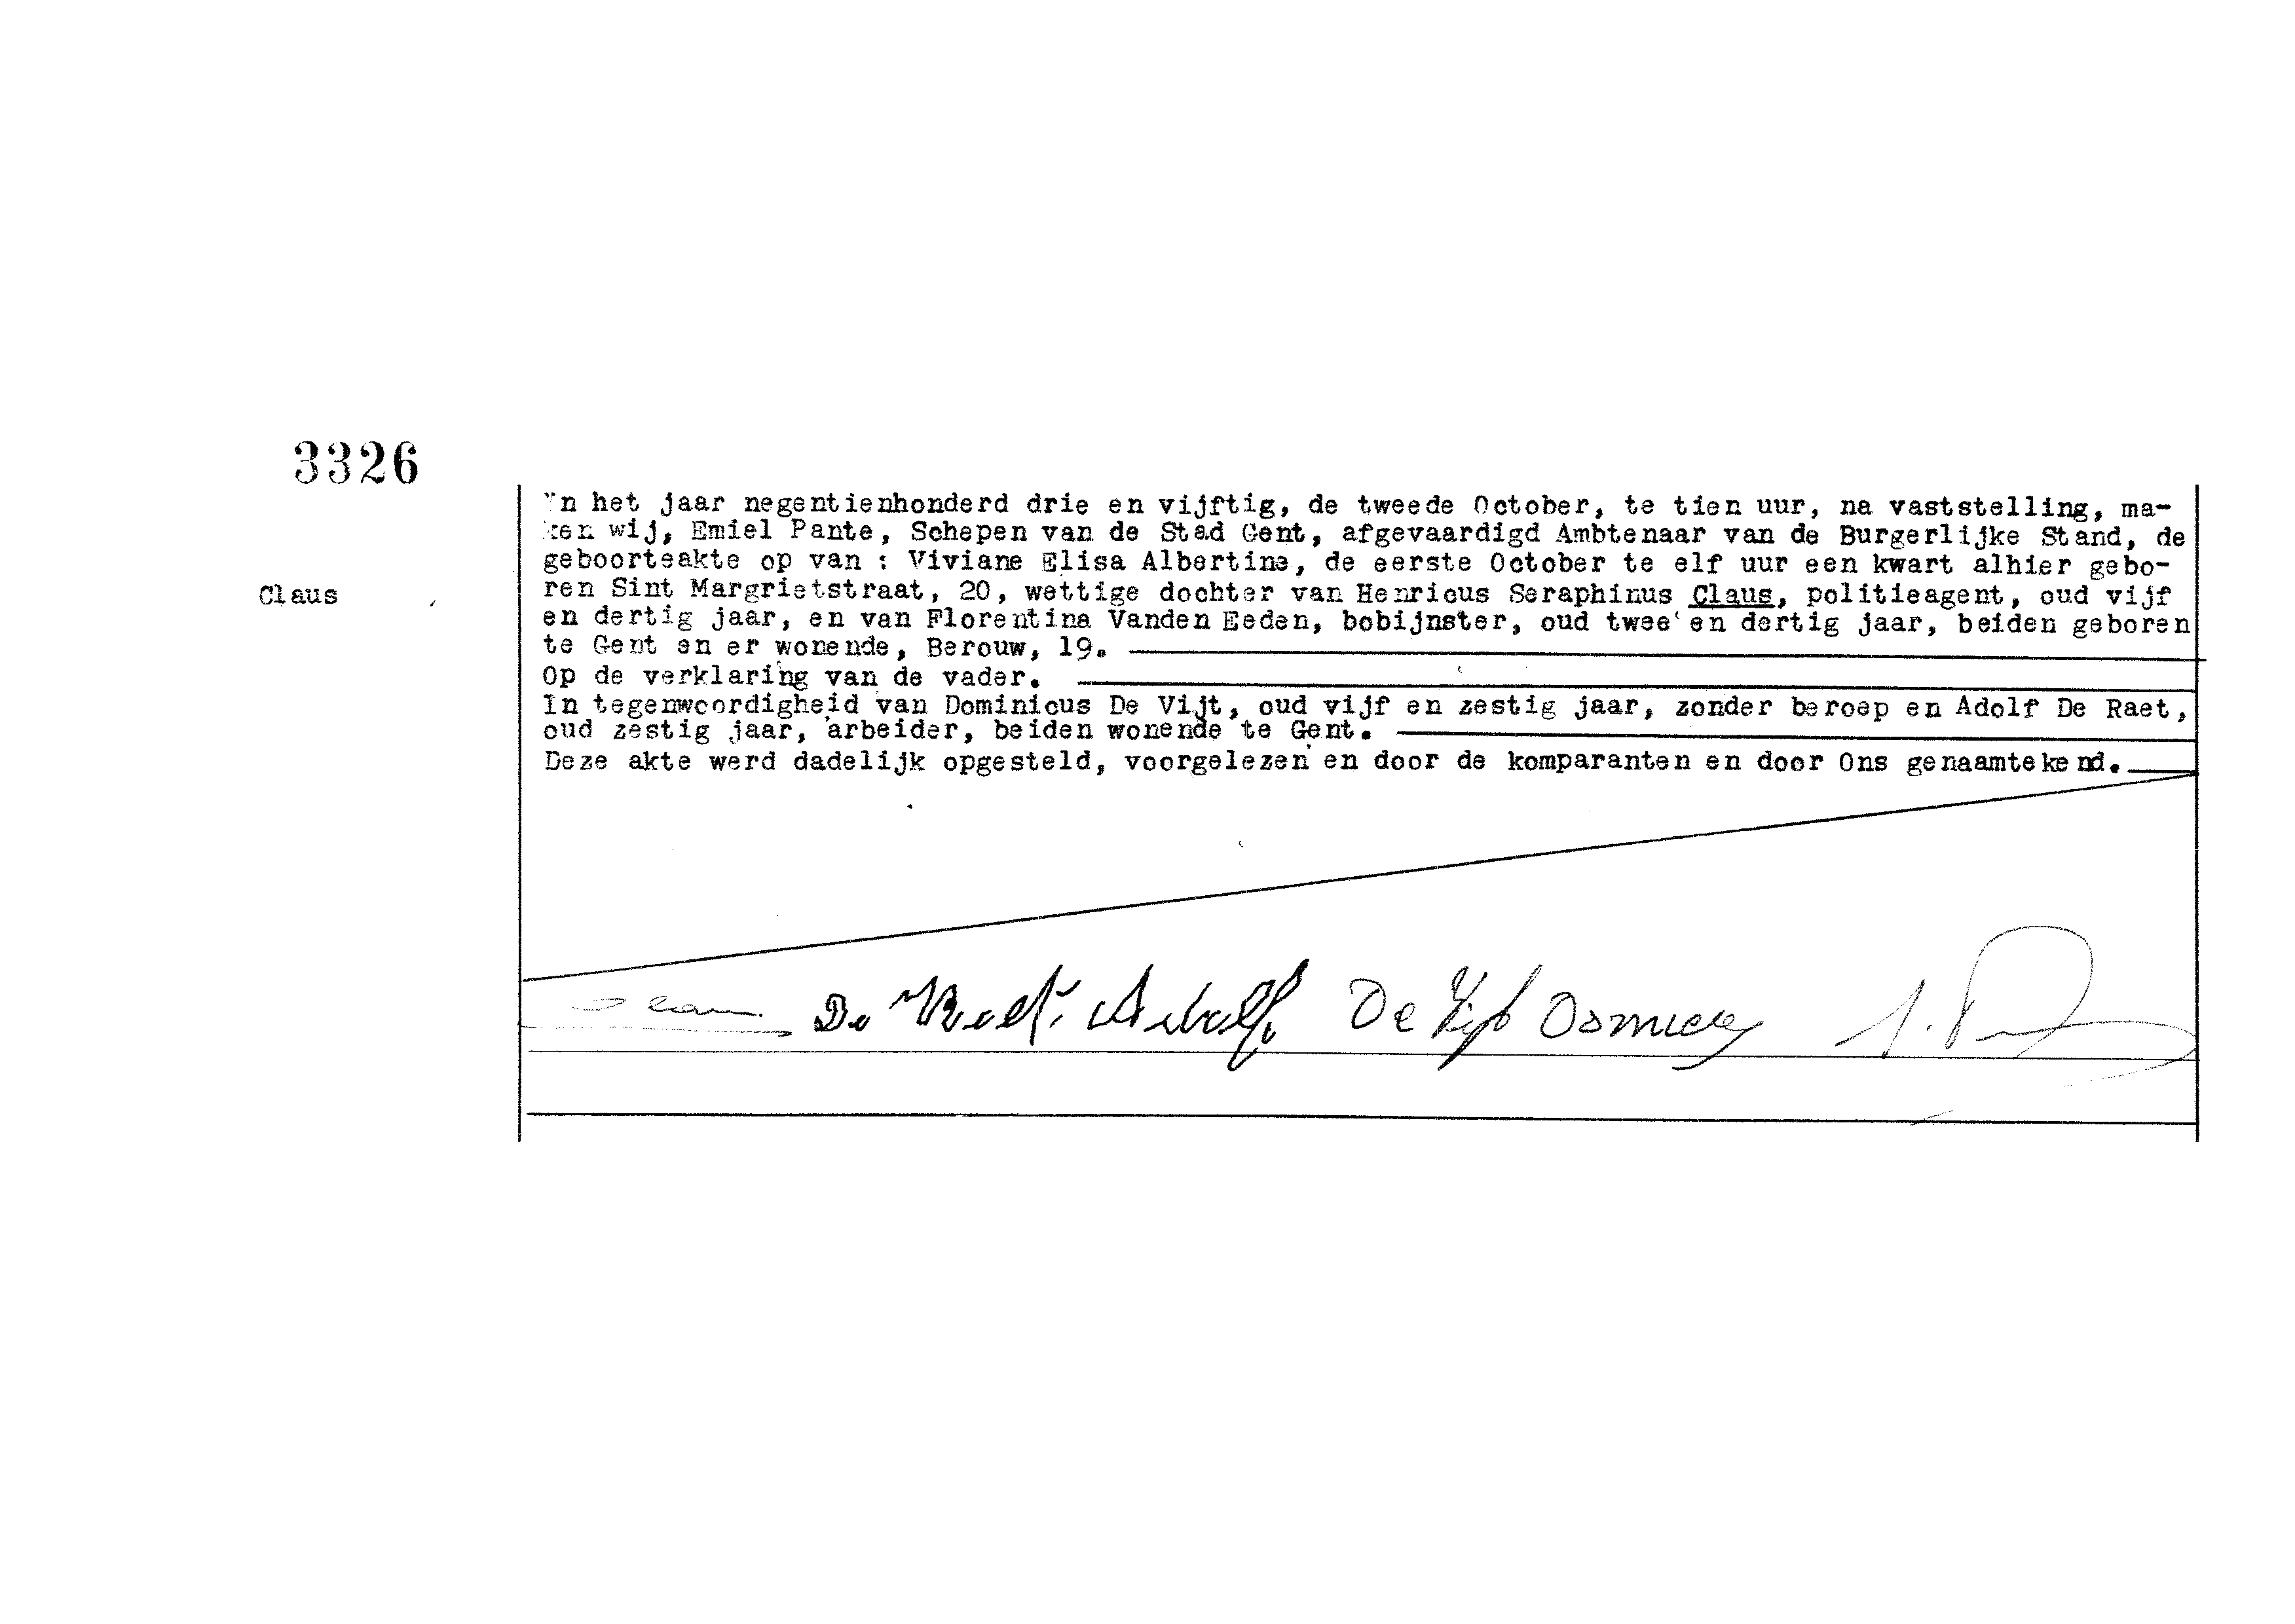 3326
Claus
In het jaar negentienhonderd drie en vijftig, de tweede October, te tien uur, na vaststelling, ma-
ken wij, Emiel Pante, Schepen van de Stad Gent, afgevaardigd Ambtenaar van de Burgerlijke Stand, de
geboorteakte op van : Viviane Elisa Albertine, de eerste October te elf uur een kwart alhier gebo-
ren Sint Margrietstraat, 20, wettige dochter van Henricus Seraphinus Claus, politieagent, oud vijf
en dertig jaar, en van Florentina Vanden Eeden, bobijnster, oud twee en dertig jaar, beiden geboren
te Gent en er wonende, Berouw, 19.
Op de verklaring van de vader.
In tegenwoordigheid van Dominicus De Vijt, oud vijf en zestig jaar, zonder beroep en Adolf De Raet,
oud zestig jaar, arbeider, beiden wonende te Gent.
Deze akte werd dadelijk opgesteld, voorgelezen en door de komparanten en door Ons genaamtekend.
De Raet. Adolf De Vijt